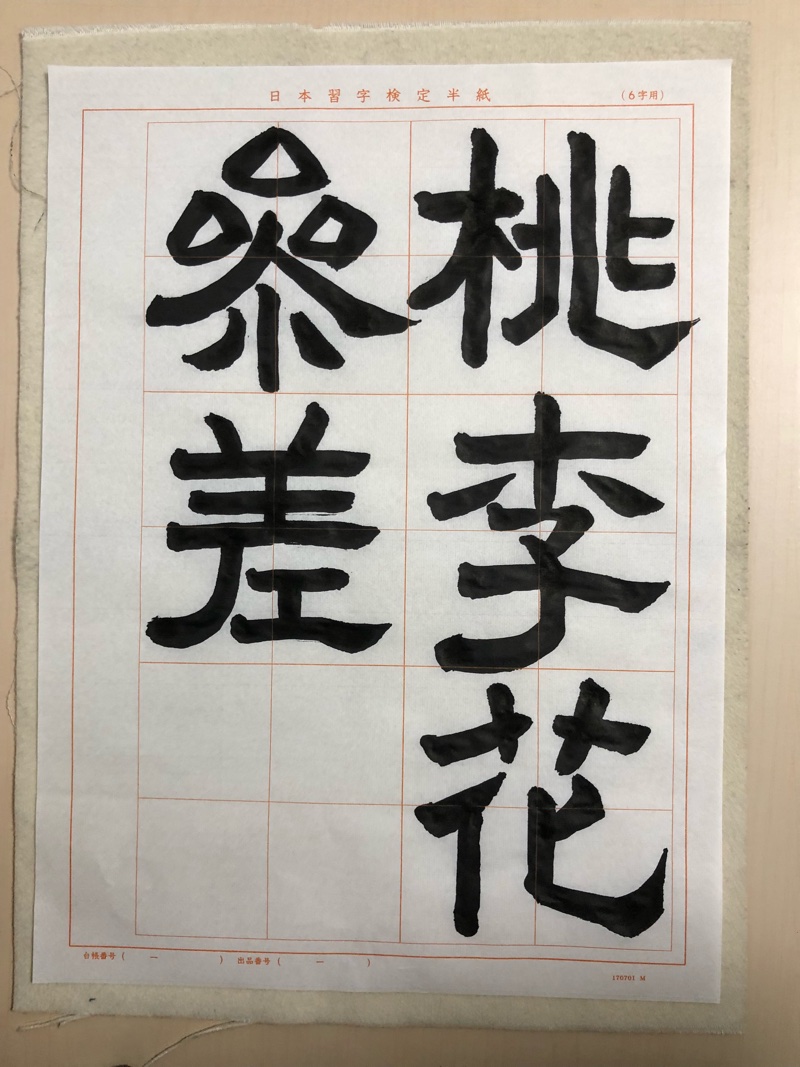 日本習字検定半紙
(6字用)
桃李花
參差
台帳番号( ー )
出品番号( ー )
170701 M